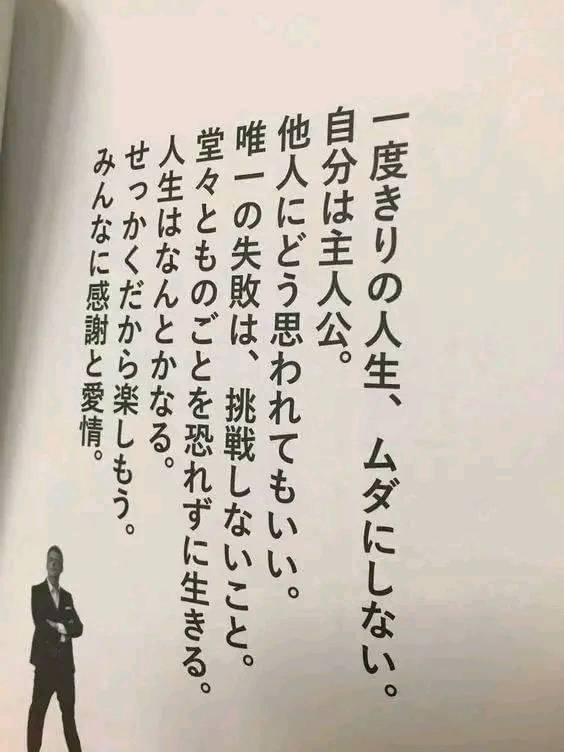 一度きりの人生、ムダにしない。
自分は主人公。
他人にどう思われてもいい。
唯一の失敗は、挑戦しないこと。
堂々とものごとを恐れずに生きる。
人生はなんとかなる。
せっかくだから楽しもう。
みんなに感謝と愛情。